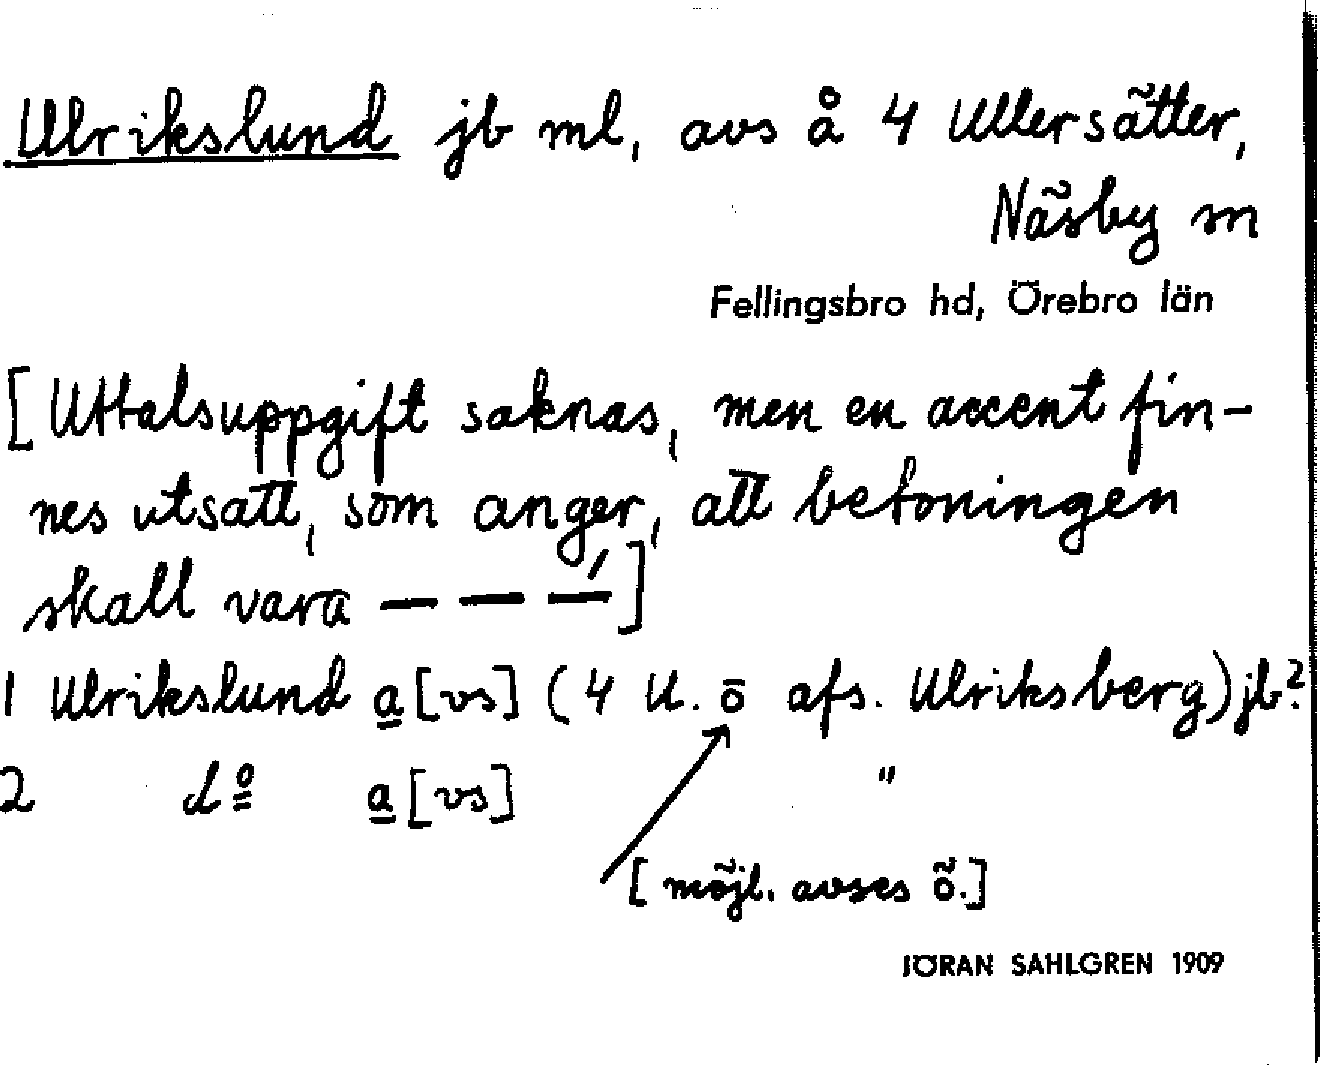 Ulrikslund jb ml, avs å 4 Ullersätter,
Näsby sn
Fellingsbro hd, Örebro län
[Uttalsuppgift saknas, men en accent fin-
nes utsatt, som anger, att betoningen
skall vara — — —́]
1 Ulrikslund a[vs] (4 U. ō afs. Ulriksberg) jb?
2 dº a[vs] "
[möjl. avses õ.]
JÖRAN SAHLGREN 1909